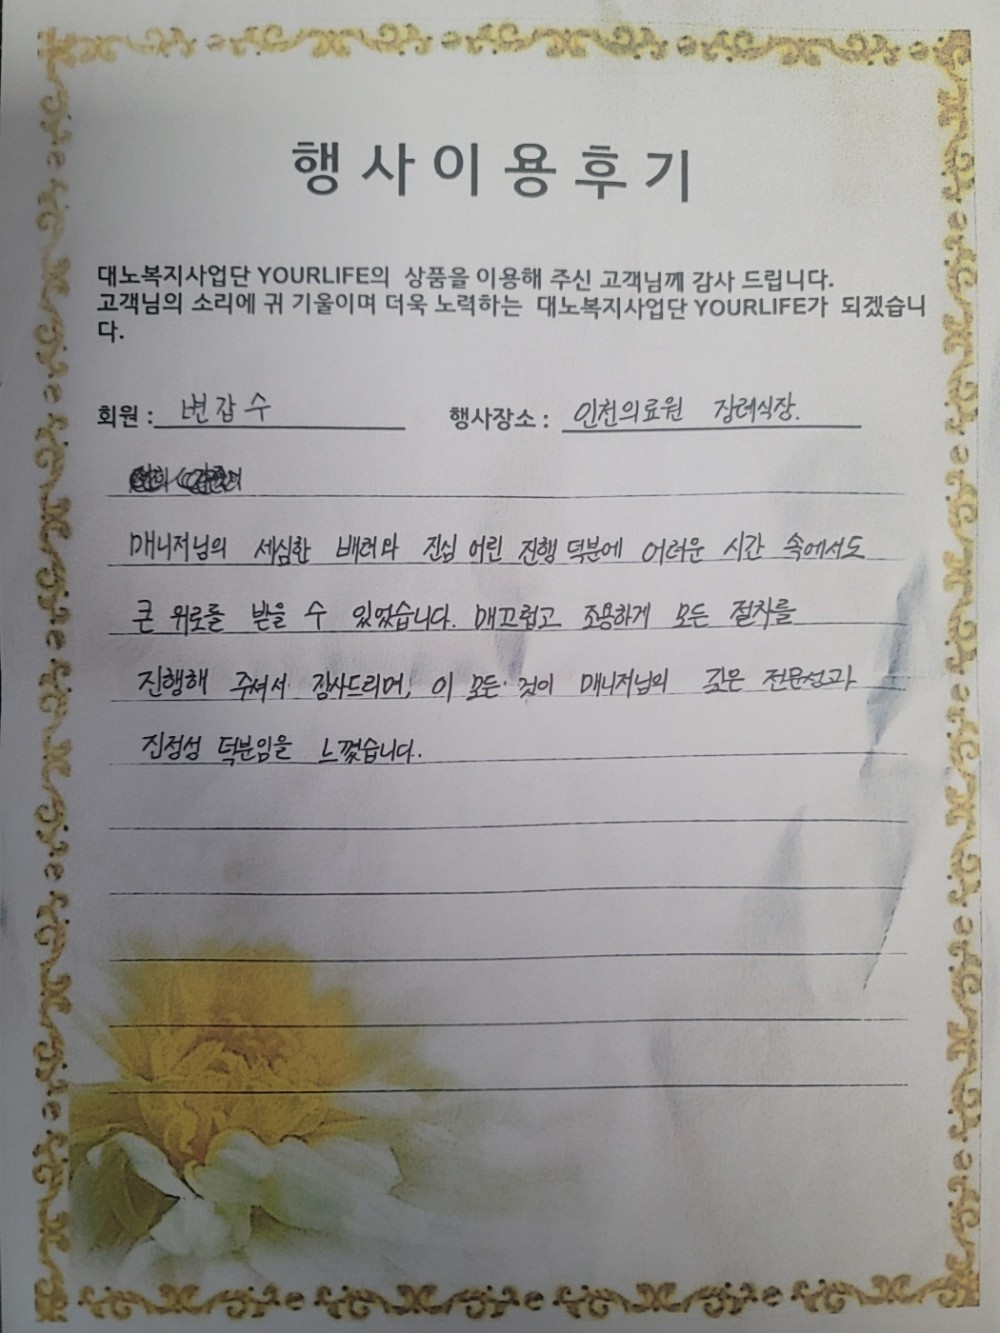 행사이용후기
대노복지사업단 YOURLIFE의 상품을 이용해 주신 고객님께 감사 드립니다.
고객님의 소리에 귀 기울이며 더욱 노력하는 대노복지사업단 YOURLIFE가 되겠습니
다.
회원 : 변갑수 행사장소 : 인천의료원 장례식장.
매니저님의 세심한 배려와 진심 어린 진행 덕분에 어려운 시간 속에서도
큰 위로를 받을 수 있었습니다. 매끄럽고 조용하게 모든 절차를
진행해 주셔서 감사드리며, 이 모든 것이 매니저님의 깊은 전문성과
진정성 덕분임을 느꼈습니다.